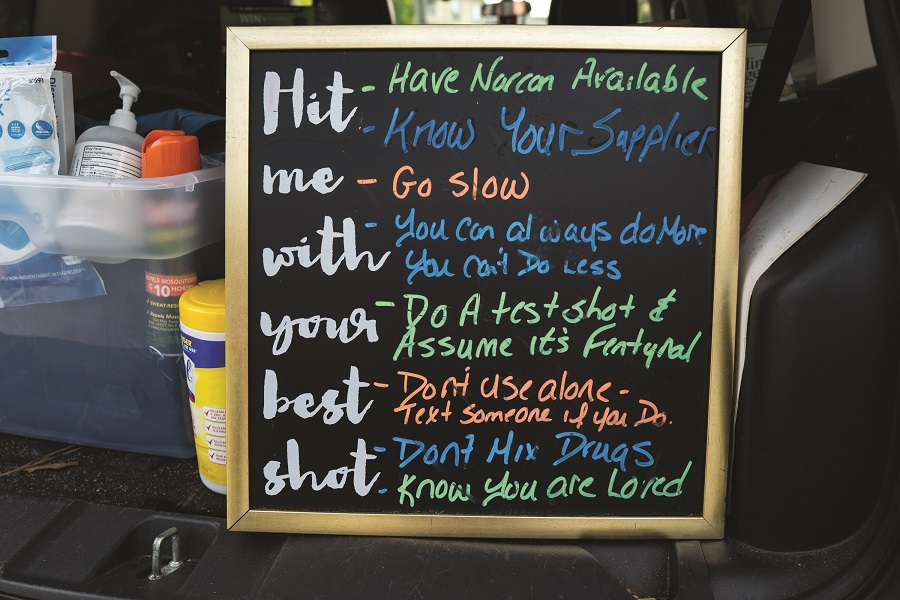 Hit - Have Narcan Available
- Know Your Supplier
me - Go slow
with - You can always do More
You can't Do Less
your - Do A test shot &
Assume it's Fentynal
best - Don't use alone -
Text someone if you Do.
shot - Don't Mix Drugs
- Know You are Loved
REPELS MOSQUITOES
10 HOURS